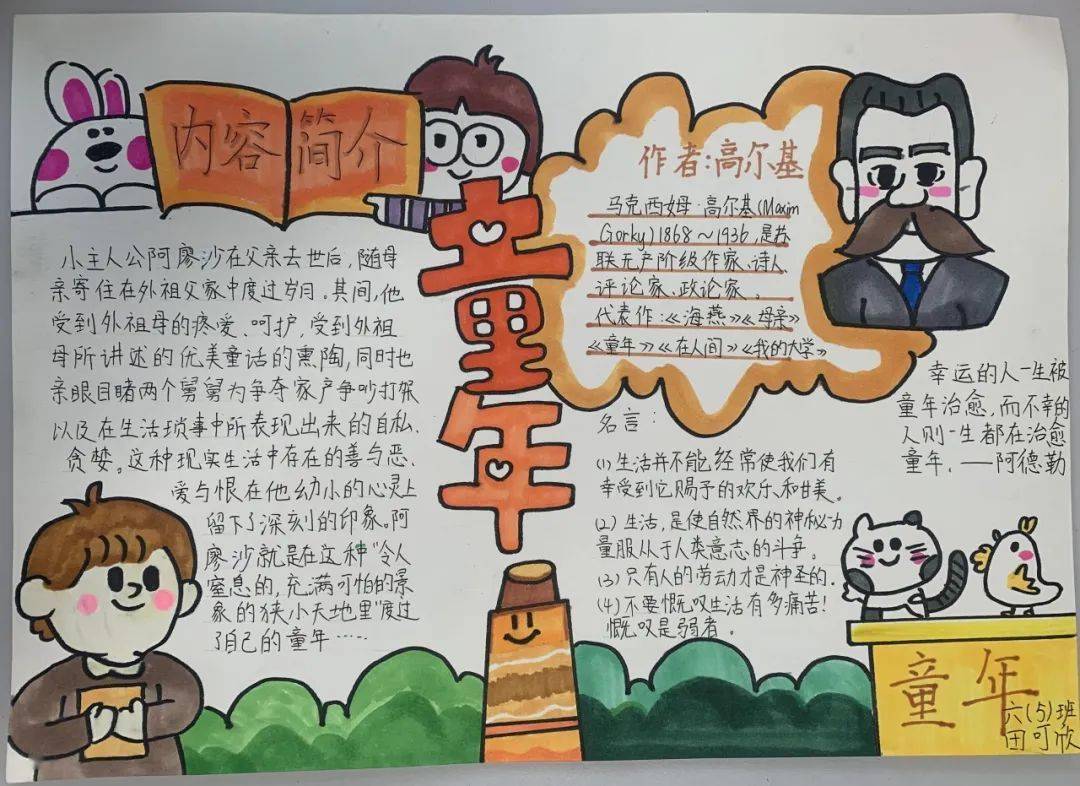 内容简介
小主人公阿廖沙在父亲去世后,随母
亲寄住在外祖父家中度过岁月。其间,他
受到外祖母的疼爱、呵护,受到外祖
母所讲述的优美童话的熏陶,同时也
亲眼目睹两个舅舅为争夺家产争吵打架
以及在生活琐事中所表现出来的自私、
贪婪。这种现实生活中存在的善与恶、
爱与恨在他幼小的心灵上
留下了深刻的印象。阿
廖沙就是在这种"令人
窒息的,充满可怕的景
象的狭小天地里"度过
了自己的童年……
童年
作者:高尔基
马克西姆·高尔基(Maxim
Gorky)1868~1936,是苏
联无产阶级作家、诗人、
评论家、政论家。
代表作:《海燕》《母亲》
《童年》《在人间》《我的大学》
名言:
(1)生活并不能经常使我们有
幸受到它赐予的欢乐和甘美。
(2)生活,是使自然界的神秘力
量服从于人类意志的斗争。
(3)只有人的劳动才是神圣的.
(4)不要慨叹生活有多痛苦!
慨叹是弱者。
幸运的人一生被
童年治愈,而不幸的
人则一生都在治愈
童年。——阿德勒
童年
六(5)班
田可欣